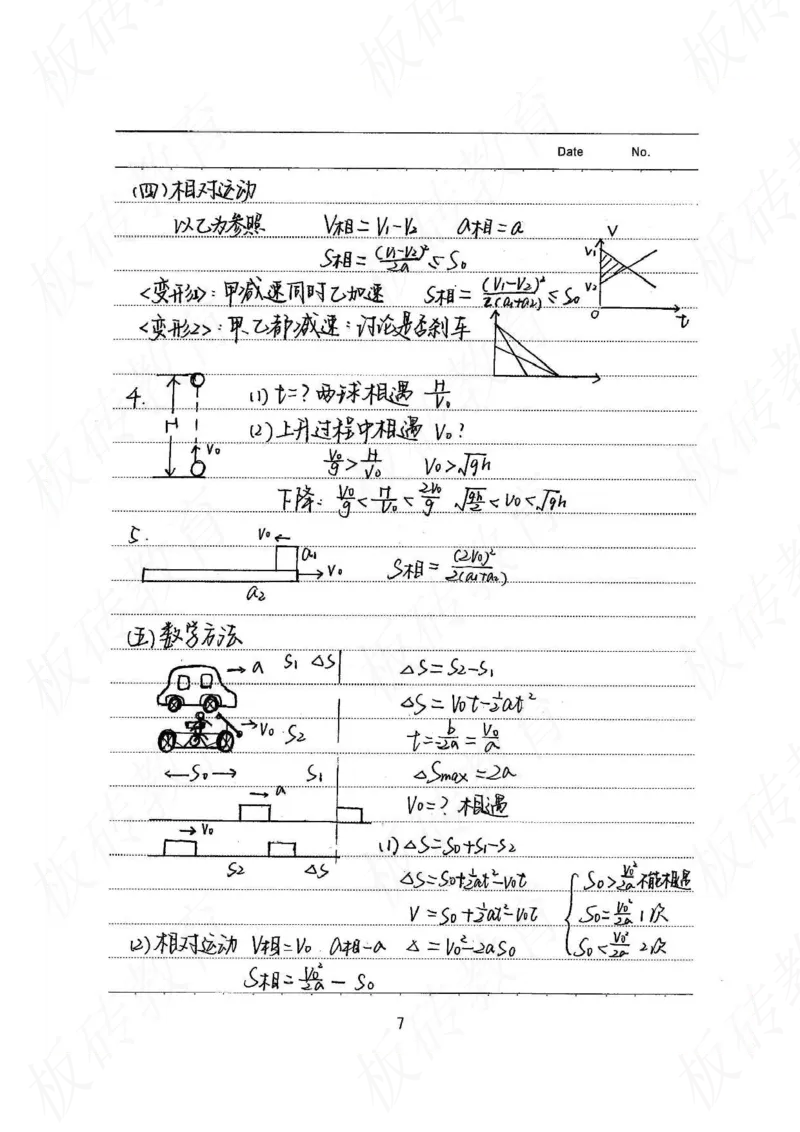 Date No.
(四)相对运动
以乙为参照 V相=V₁-V₂ a相=a
S相=(V₁-V₂)²/2a ≤S₀
V
V₁
V₂
O
t
<变形1>:甲减速同时乙加速 S相=(V₁-V₂)²/2(a₁+a₂) ≤S₀
<变形2>:甲、乙都减速:讨论是否刹车
4. H V₀
(1) t=?两球相遇 H/V₀
(2)上升过程中相遇 V₀?
V₀/g>H/V₀ V₀>√gh
下降: V₀/g<H/V₀<2V₀/g √gh/2<V₀<√gh
5. V₀ a₁
V₀
a₂
S相=(2V₀)²/2(a₁+a₂)
(五)数学方法
a S₁ ΔS
V₀ S₂
ΔS=S₂-S₁
ΔS=V₀t-½at²
t=b/-2a=V₀/a
S₀ S₁ ΔSmax=2a
a V₀=?相遇
V₀
(1)ΔS=S₀+S₁-S₂
S₂ ΔS
ΔS=S₀+½at²-V₀t
V=S₀+½at²-V₀t
S₀>V₀²/2a 不能相遇
S₀=V₀²/2a 1次
S₀<V₀²/2a 2次
(2)相对运动 V相=V₀ a相-a Δ=V₀²-2aS₀
S相=V₀²/2a-S₀
7
板砖教育